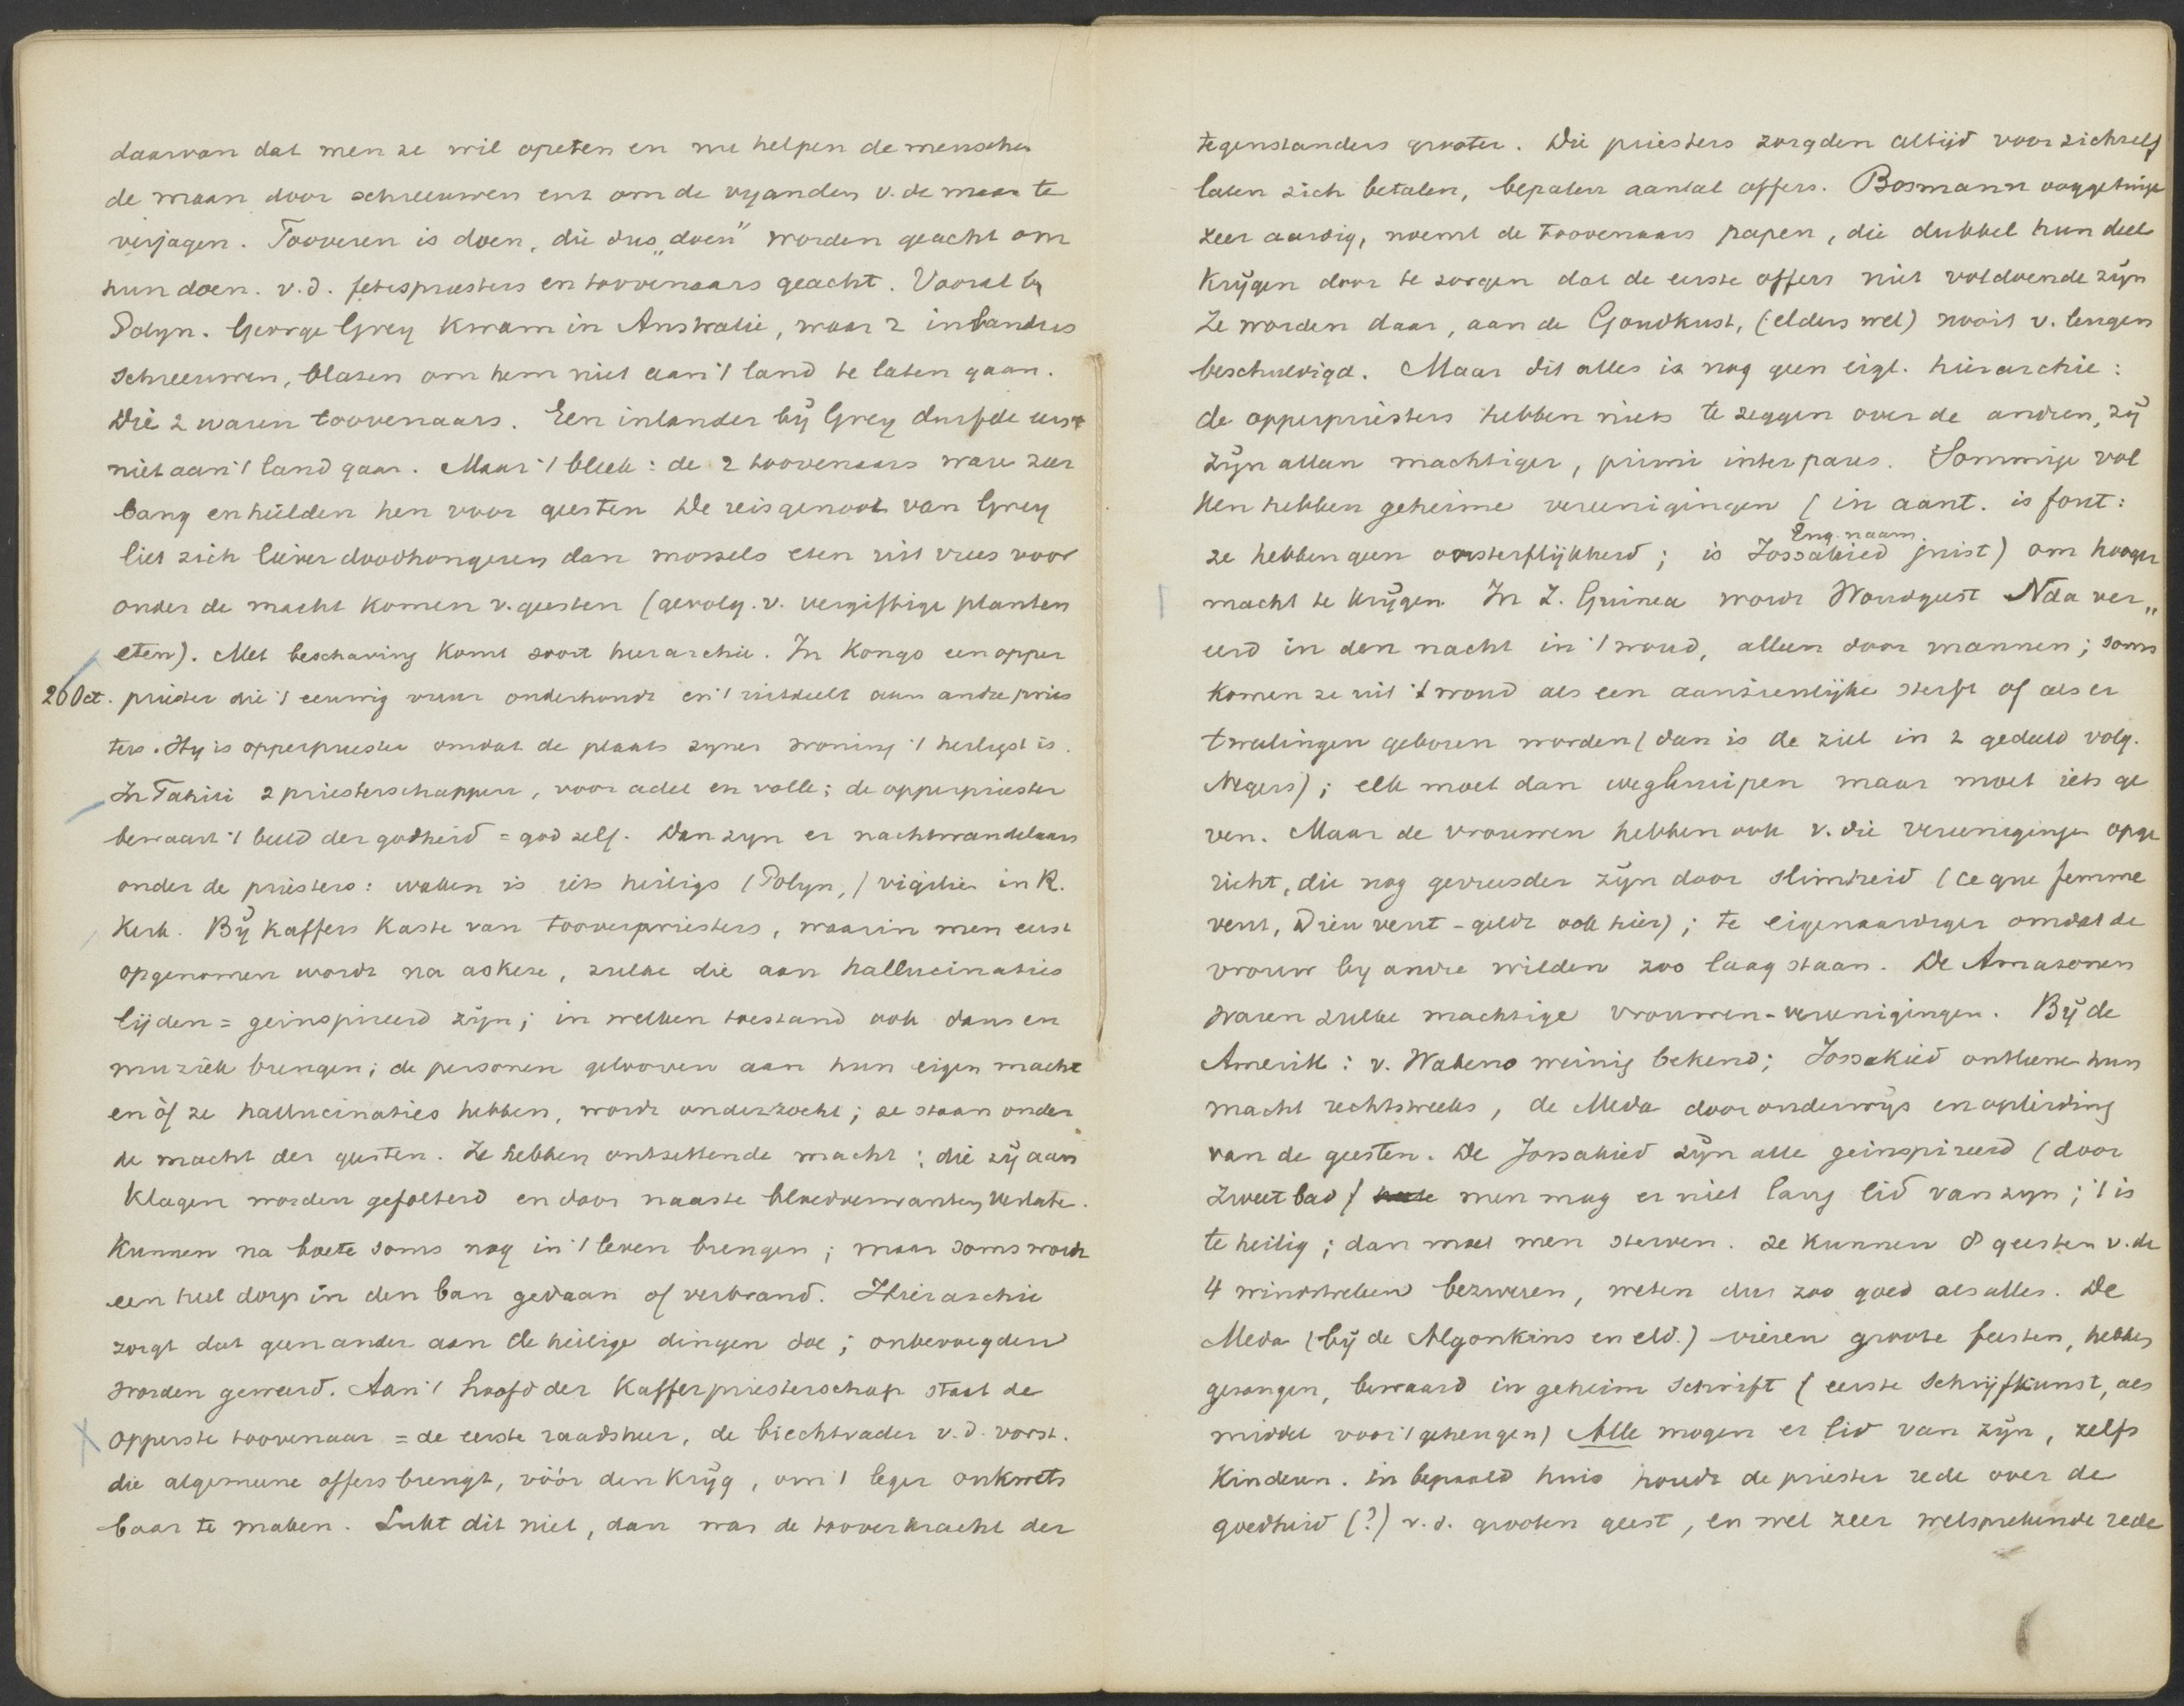 daarvan dat men ze wil opeten en nu helpen de menschen
de maan door schreeuwen enz om de vyanden v. de maan te
verjagen. Tooveren is doen, die dus „doen" worden geacht om
hun doen. v.d. fetespriesters en toovenaars geacht. Vooral by
Polyn. George Grey kwam in Australie, waar 2 inlanders
schreeuwen, blazen om hem niet aan 't land te laten gaan.
Die 2 waren toovenaars. Een inlander bij Grey durfde eerst
niet aan 't land gaan. Maar 't bleek: de 2 toovenaars ware zeer
bang en hielden hen voor geesten De reisgenoot van Grey
liet zich liever doodhongeren dan mossels eten uit vrees voor
onder de macht komen v. geesten (gevolg. v. vergiftige planten
eten). Met beschaving komt soort hierarchie. In Kongo een opper
26 Oct. priester die 't eeuwig vuur onderhoudt en 't uitdeelt aan andre pries
ters. Hy is opperpriester omdat de plaats zyner woning 't heiligst is.
In Tahiti 2 priesterschappen, voor adel en volk; de opperpriester
bewaart 't beeld der godheid = god zelf. Dan zyn er nachtwandelaars
onder de priesters: waken is iets heiligs (Polyn,) vigilie in R.
Kerk. Bij Kaffers Kaste van tooverpriesters, waarin men eerst
opgenomen wordt na askese, zulke die aan hallucinaties
lijden = geinspireerd zijn; in welken toestand ook dans en
muziek brengen; de personen gelooven aan hun eigen macht
en òf ze hallucinaties hebben, wordt onderzocht; ze staan onder
de macht der geesten. Ze hebben ontzettende macht: die zij aan
klagen worden gefolterd en door naaste bloedverwanten verlate.
Kunnen na boete soms nog in 't leven brengen; maar soms wordt
een heel dorp in den ban gedaan of verbrand. Hierarchie
zorgt dat geen ander aan de heilige dingen doe; onbevoegden
worden geweerd. Aan 't hoofd der Kafferpriesterschap staat de
opperste toovenaar = de eerste raadsheer, de biechtvader v.d. vorst.
die algemeene offers brengt, vóór den krijg, om 't leger onkwets
baar te maken. Lukt dit niet, dan was de tooverkracht der
tegenstanders grooter. Die priesters zorgden altijd voor zichzelf
laten zich betalen, bepalen aantal offers. Bosmann ooggetuige
zeer aardig, noemt de toovenaars papen, die dubbel hun deel
krijgen door te zorgen dat de eerste offers niet voldoende zijn
Ze worden daar, aan de Goudkust, (elders wel) nooit v. leugen
beschuldigd. Maar dit alles is nog geen eigl. hierarchie:
de opperpriesters hebben niets te zeggen over de andren, zij
zijn alleen machtiger, primi inter pares. Sommige vol
ken hebben geheime vereenigingen (in aant. is fout:
ze hebben geen onsterflijkheid; is Jossakied juist) om hooger
Eng. naam
macht te krijgen In Z. Guinea wordt Woudgeest Nda ver„
eerd in den nacht in 't woud, alleen door mannen; soms
komen ze uit 't woud als een aanzienlijke sterft of als er
tweelingen geboren worden (dan is de ziel in 2 gedeeld volg.
Negers); elk moet dan wegkruipen maar moet iets ge
ven. Maar de vrouwen hebben ook v. die vereeniginge opge
richt, die nog gevreesder zijn door slimheid (ce que femme
veut, Dieu veut - geldt ook hier); te eigenaardiger omdat de
vrouw by andre wilden zoo laag staan. De Amazonen
waren zulke machtige vrouwen-vereenigingen. Bij de
Amerik: v. Wabeno weinig bekend; Jossakied ontleene hun
macht rechtstreeks, de Meda door onderwijs en opleiding
van de geesten. De Jossakied zijn alle geinspireerd (door
zweetbad) men mag er niet lang lid van zyn; 't is
te heilig; dan moet men sterven. Ze kunnen d geesten v. de
4 windstreken bezweren, weten dus zoo goed als alles. De
Meda (bij de Algonkins en eld.) vieren groote feesten, hebben
gezangen, bewaard in geheim schrift (eerste schrijfkunst, als
middel voor 't geheugen) Alle mogen er lid van zijn, zelfs
kinderen. in bepaald huis houdt de priester rede over de
goedheid (?) v.d. grooten geest, en wel zeer welsprekende rede